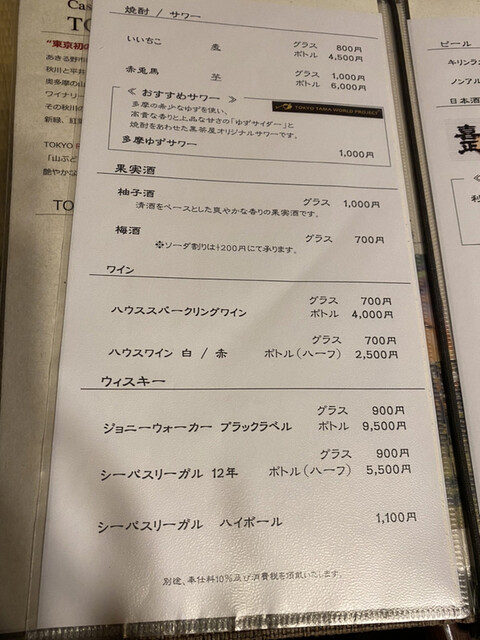 Cas
TO
"東京初の
あきる野市
秋川と平井
奥多摩の山
ワイナリー
その秋川の
新緑、紅
TOKYO
「山ぶど
艶やかな
TO
焼酎 / サワー
いいちこ 麦 グラス 800円
ボトル 4,500円
赤兎馬 芋 グラス 1,000円
ボトル 6,000円
≪ おすすめサワー ≫
TOKYO TAMA WORLD PROJECT
多摩の希少なゆずを使い、
高貴な香りと上品な甘さの「ゆずサイダー」と
焼酎をあわせた黒茶屋オリジナルサワーです。
多摩ゆずサワー 1,000円
果実酒
柚子酒 グラス 1,000円
清酒をベースとした爽やかな香りの果実酒です。
梅酒 グラス 700円
※ソーダ割りは+200円にて承ります。
ワイン
ハウススパークリングワイン グラス 700円
ボトル 4,000円
ハウスワイン 白 / 赤 グラス 700円
ボトル(ハーフ) 2,500円
ウィスキー
ジョニーウォーカー ブラックラベル グラス 900円
ボトル 9,500円
シーバスリーガル 12年 グラス 900円
ボトル(ハーフ) 5,500円
シーバスリーガル ハイボール 1,100円
別途、奉仕料10%及び消費税を頂戴いたします。
ビール
キリンラ
ノンアル
日本酒